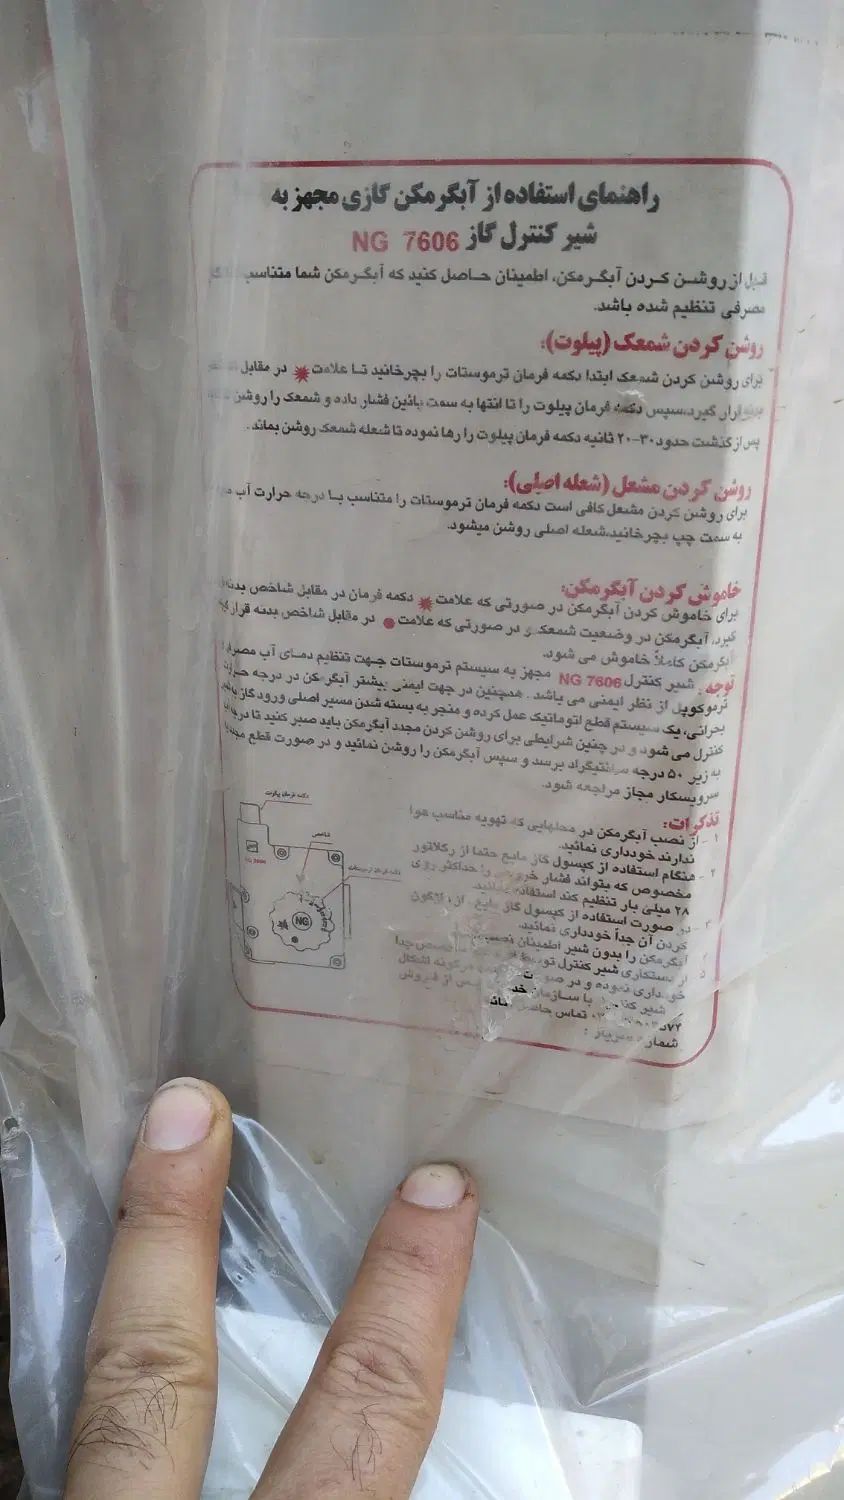 راهنمای استفاده از آبگرمکن گازی مجهز به
شیر کنترل گاز NG 7606
قبل از روشن کردن آبگرمکن، اطمینان حاصل کنید که آبگرمکن شما متناسب
مصرفی تنظیم شده باشد.
روشن کردن شمعک (پیلوت):
برای روشن کردن شمعک ابتدا دکمه فرمان ترموستات را بچرخانید تا علامت در مقابل
قرار گیرد.سپس دکمه فرمان پیلوت را تا انتها به سمت پائین فشار داده و شمعک را روشن
پس از گذشت حدود ۳۰-۲۰ ثانیه دکمه فرمان پیلوت را رها نموده تا شعله شمعک روشن بماند.
روشن کردن مشعل (شعله اصلی):
برای روشن کردن مشعل کافی است دکمه فرمان ترموستات را متناسب با درجه حرارت آب
به سمت چپ بچرخانید،شعله اصلی روشن میشود.
خاموش کردن آبگرمکن:
برای خاموش کردن آبگرمکن در صورتی که علامت دکمه فرمان در مقابل شاخص بدنه
گیرد، آبگرمکن در وضعیت شمعک و در صورتی که علامت در مقابل شاخص بدنه قرار
آبگرمکن کاملاً خاموش می شود.
توجه: شیر کنترل NG 7606 مجهز به سیستم ترموستات جهت تنظیم دمای آب مصرفی
ترموکوپل از نظر ایمنی می باشد. همچنین در جهت ایمنی بیشتر آبگرمکن در درجه حرارت
بحرانی، یک سیستم قطع اتوماتیک عمل کرده و منجر به بسته شدن مسیر اصلی ورود گاز به شیر
کنترل می شود و در چنین شرایطی برای روشن کردن مجدد آبگرمکن باید صبر کنید تا درجه
به زیر ۵۰ درجه سانتیگراد برسد و سپس آبگرمکن را روشن نمائید و در صورت قطع مجدد
سرویسکار مجاز مراجعه شود.
تذکرات:
۱ - از نصب آبگرمکن در محلهایی که تهویه مناسب هوا
ندارند خودداری نمائید.
۲ - هنگام استفاده از کپسول گاز مایع حتما از رگلاتور
مخصوص که بتواند فشار خروجی را حداکثر روی
۲۸ میلی بار تنظیم کند استفاده نمائید.
۳ - در صورت استفاده از کپسول گاز مایع، از واژگون
کردن آن جداً خودداری نمائید.
آبگرمکن را بدون شیر اطمینان
از دستکاری شیر کنترل توسط جدا
خودداری نموده و در صورت هرگونه اشکال
شیر کنترل با سازمان از فروش
تماس حاصل
شماره سریال :
دکمه فرمان پیلوت
شاخص
دکمه فرمان ترموستات
NG 7606
NG